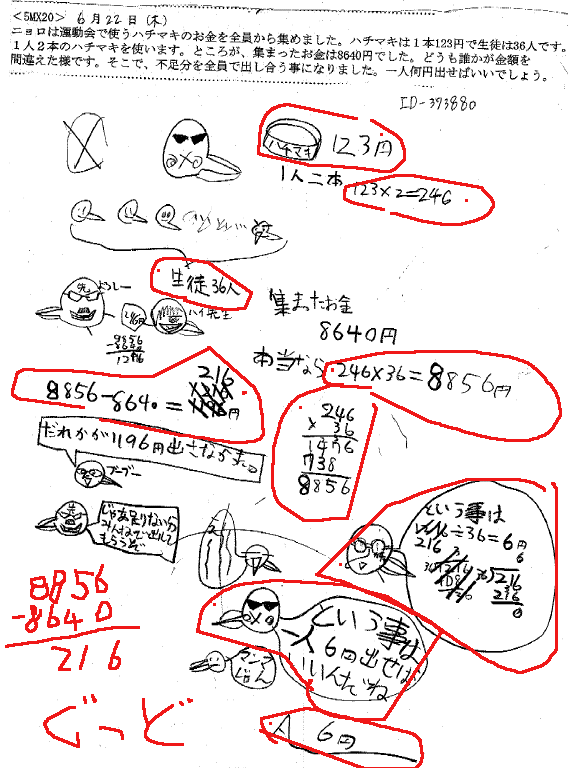 <5MX20> 6月22日(木)
ニョロは運動会で使うハチマキのお金を全員から集めました。ハチマキは1本123円で生徒は36人です。
1人2本のハチマキを使います。ところが、集まったお金は8640円でした。どうも誰かが金額を
間違えた様です。そこで、不足分を全員で出し合う事になりました。一人何円出せばいいでしょう。
ID-393880
ハチマキ 123円
1人二本
123×2=246
生徒36人
ハイ先生
8856
8640
集まったお金
8640円
本当なら 246×36=8856円
216
8856-8640=
円
246
×36
1476
738
8856
だれかが1196円出さなかった。
ブーブー
じゃあ足りないから
みんなで出して
もらうぞ
という事は
216
÷36=6円
6
216
216
0
8856
-8640
216
という事は
一人
6円出せば
いいんだね
ぐっど
A 6円